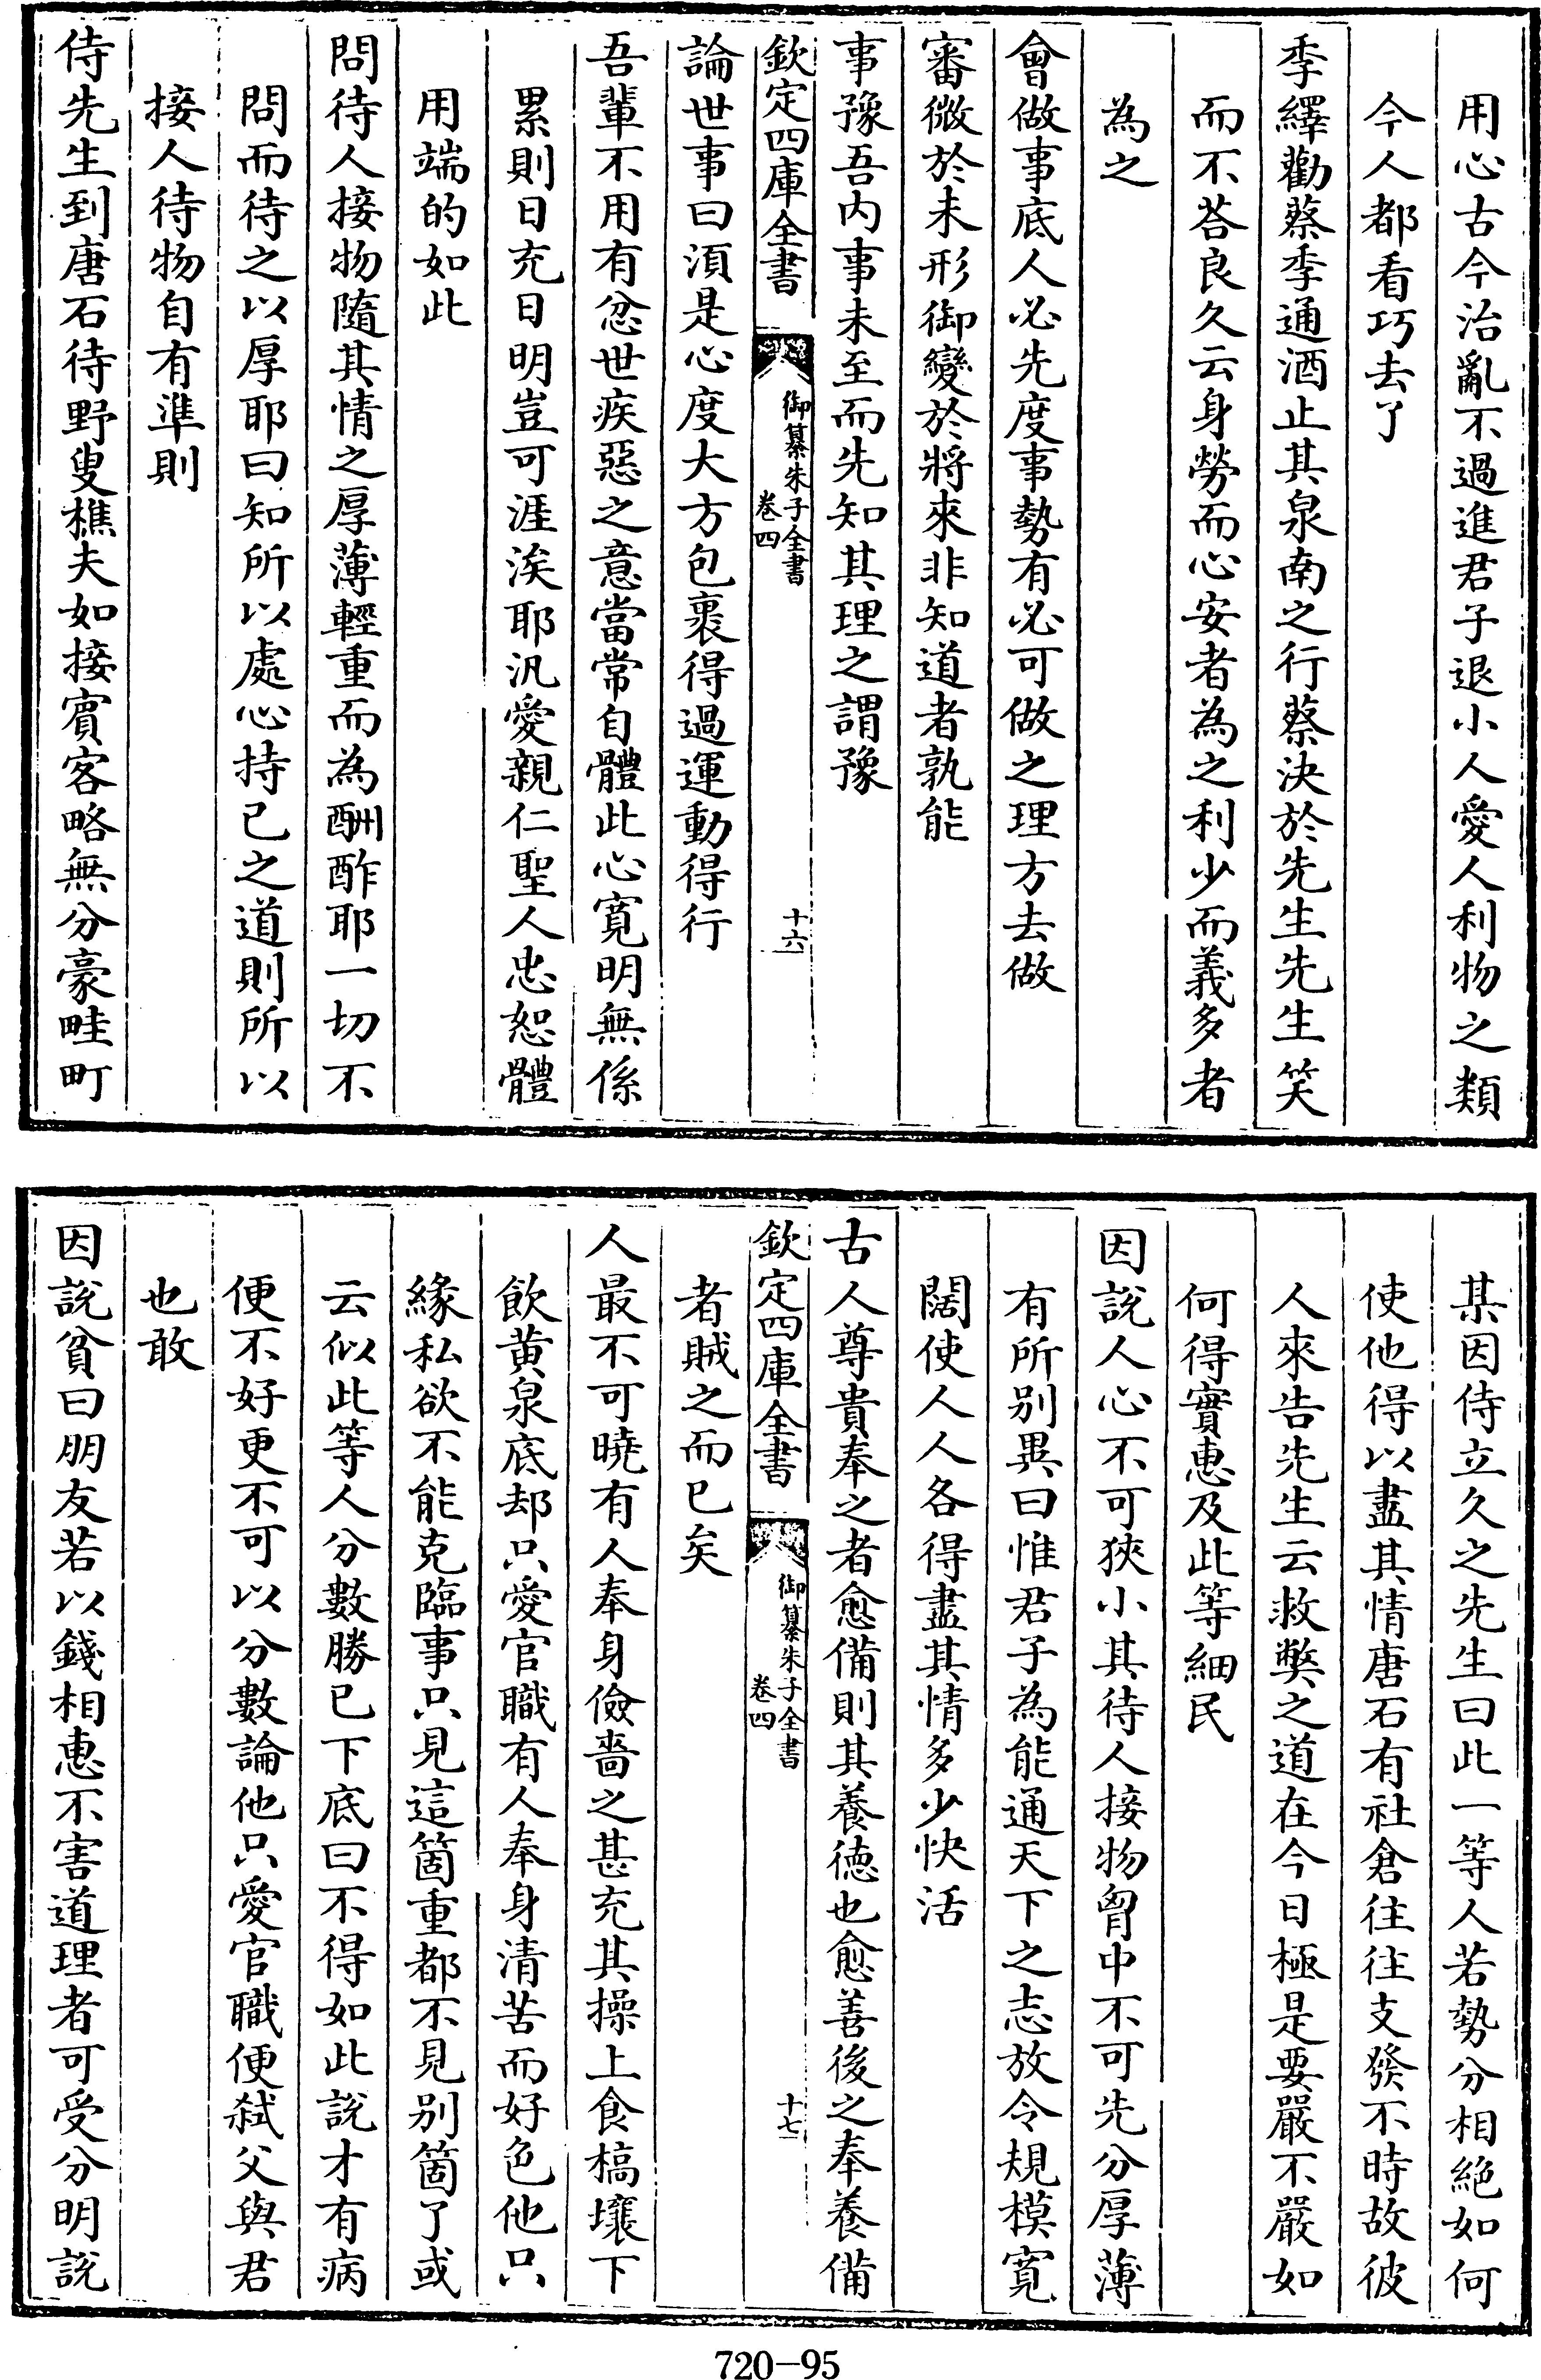 用心古今治亂不過進君子退小人愛人利物之類
今人都看巧去了
季繹勸蔡季通酒止其泉南之行蔡決於先生先生笑
而不荅良久云身勞而心安者為之利少而義多者
為之
會做事底人必先度事勢有必可做之理方去做
審微於未形御變於將來非知道者孰能
事豫吾内事未至而先知其理之謂豫
欽定四庫全書
御纂朱子全書
卷四
十六
論世事曰須是心度大方包裹得過運動得行
吾輩不用有忿世疾惡之意當常自體此心寛明無係
累則日充日明豈可涯涘耶汎愛親仁聖人忠恕體
用端的如此
問待人接物隨其情之厚薄輕重而為酬酢耶一切不
問而待之以厚耶曰知所以處心持己之道則所以
接人待物自有準則
侍先生到唐石待野叟樵夫如接賓客略無分豪畦町
某因侍立久之先生曰此一等人若勢分相絶如何
使他得以盡其情唐石有社倉往往支發不時故彼
人來告先生云救弊之道在今日極是要嚴不嚴如
何得實惠及此等細民
因說人心不可狹小其待人接物胷中不可先分厚薄
有所別異曰惟君子為能通天下之志放令規模寛
闊使人人各得盡其情多少快活
古人尊貴奉之者愈備則其養德也愈善後之奉養備
欽定四庫全書
御纂朱子全書
卷四
十七
者賊之而已矣
人最不可曉有人奉身儉嗇之甚充其操上食槁壤下
飲黄泉底却只愛官職有人奉身清苦而好色他只
緣私欲不能克臨事只見這箇重都不見别箇了或
云似此等人分數勝已下底曰不得如此說才有病
便不好更不可以分數論他只愛官職便弑父與君
也敢
因說貧曰朋友若以錢相惠不害道理者可受分明說
720-95